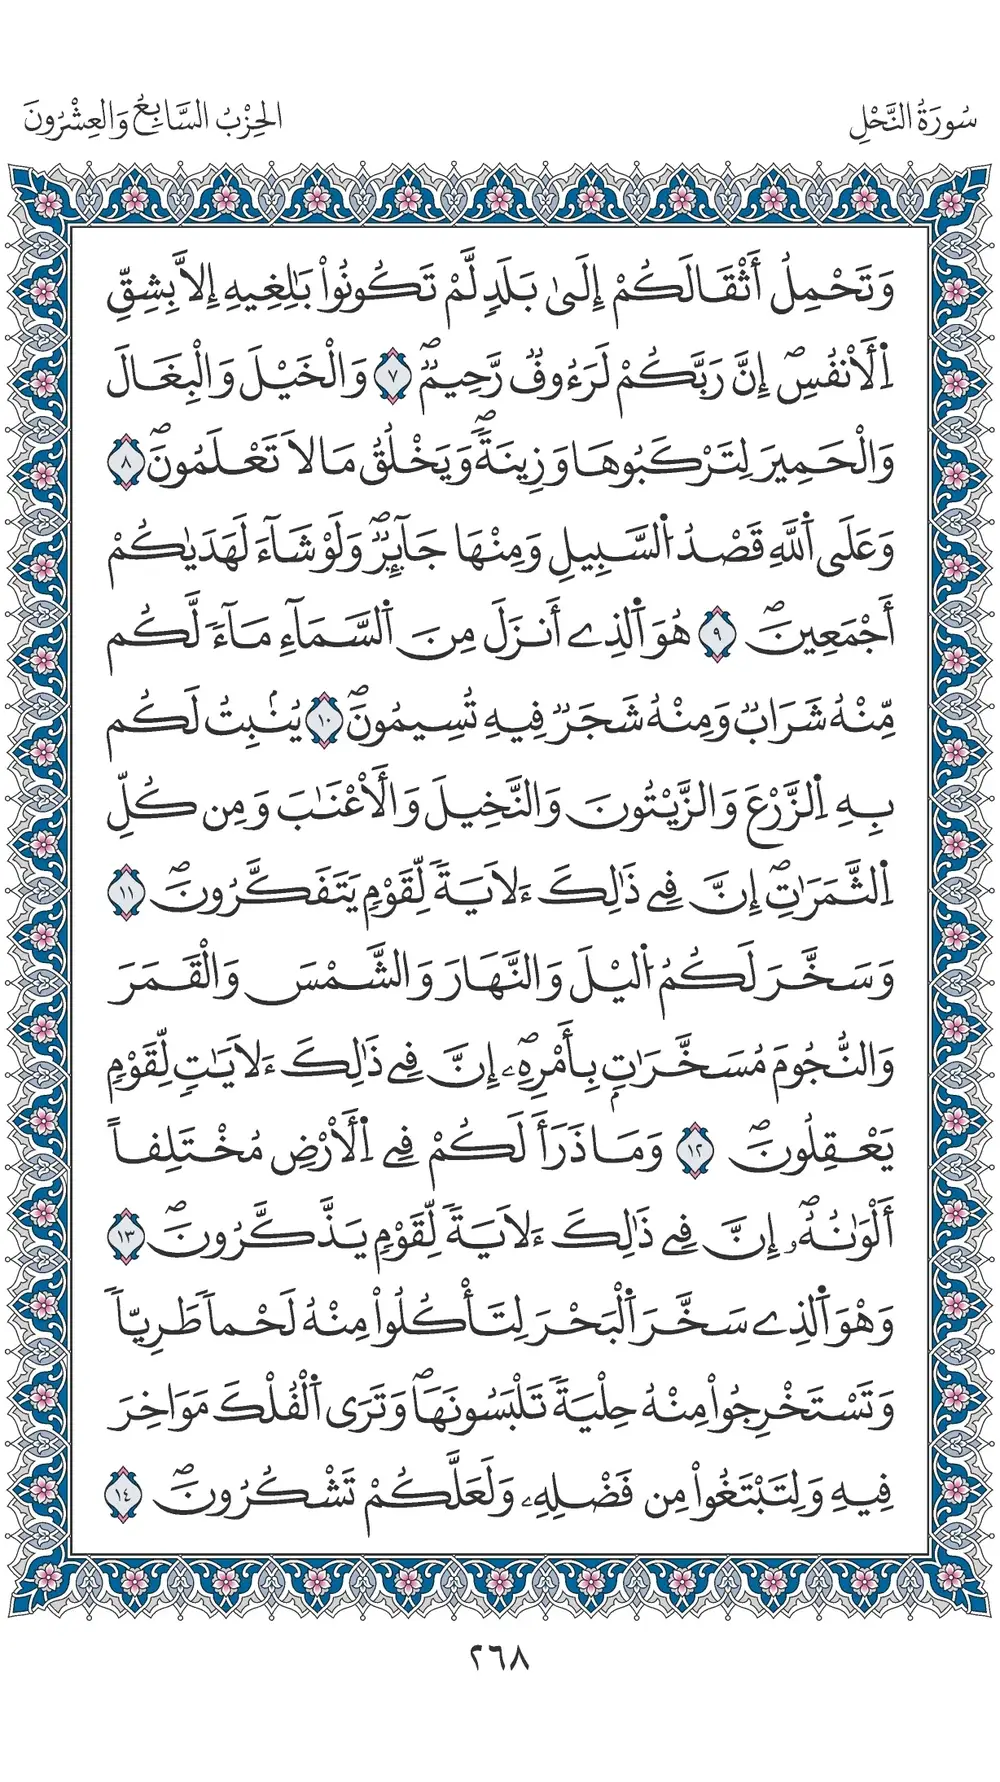 سُورَةُ النَّحْلِ
الحِزْبُ السَّابِعُ وَالعِشْرُونَ
وَتَحْمِلُ أَثْقَالَكُمْ إِلَىٰ بَلَدٖ لَّمْ تَكُونُواْ بَٰلِغِيهِ إِلَّا بِشِقِّ
اِ۬لْأَنفُسِۖ إِنَّ رَبَّكُمْ لَرَءُوفٞ رَّحِيمٞۖ ٧ وَالْخَيْلَ وَالْبِغَالَ
وَالْحَمِيرَ لِتَرْكَبُوهَا وَزِينَةٗۖ وَيَخْلُقُ مَا لَا تَعْلَمُونَۖ ٨
وَعَلَى اَ۬للَّهِ قَصْدُ اُ۬لسَّبِيلِ وَمِنْهَا جَآئِرٞۖ وَلَوْ شَآءَ لَهَدَيٰكُمْ
أَجْمَعِينَۖ ٩ هُوَ اَ۬لذِے أَنزَلَ مِنَ اَ۬لسَّمَآءِ مَآءٗ لَّكُم
مِّنْهُ شَرَابٞ وَمِنْهُ شَجَرٞ فِيهِ تُسِيمُونَۖ ١٠ يُنۢبِتُ لَكُم
بِهِ اِ۬لزَّرْعَ وَالزَّيْتُونَ وَالنَّخِيلَ وَالْأَعْنَٰبَ وَمِن كُلِّ
اِ۬لثَّمَرَٰتِۖ إِنَّ فِے ذَٰلِكَ ءَلَايَةٗ لِّقَوْمٖ يَتَفَكَّرُونَۖ ١١
وَسَخَّرَ لَكُمُ اُ۬ليْلَ وَالنَّهَارَ وَالشَّمْسَ وَالْقَمَرَ
وَالنُّجُومَ مُسَخَّرَٰتِۢ بِأَمْرِهِۦۖ إِنَّ فِے ذَٰلِكَ ءَلَايَٰتٖ لِّقَوْمٖ
يَعْقِلُونَۖ ١٢ وَمَا ذَرَأَ لَكُمْ فِے اِ۬لْأَرْضِ مُخْتَلِفاً
أَلْوَٰنُهُۥۖ إِنَّ فِے ذَٰلِكَ ءَلَايَةٗ لِّقَوْمٖ يَذَّكَّرُونَۖ ١٣
وَهْوَ اَ۬لذِے سَخَّرَ اَ۬لْبَحْرَ لِتَأْكُلُواْ مِنْهُ لَحْماٗ طَرِيّاٗ
وَتَسْتَخْرِجُواْ مِنْهُ حِلْيَةٗ تَلْبَسُونَهَاۖ وَتَرَى اَ۬لْفُلْكَ مَوَاخِرَ
فِيهِ وَلِتَبْتَغُواْ مِن فَضْلِهِۦ وَلَعَلَّكُمْ تَشْكُرُونَۖ ١٤
٢٦٨